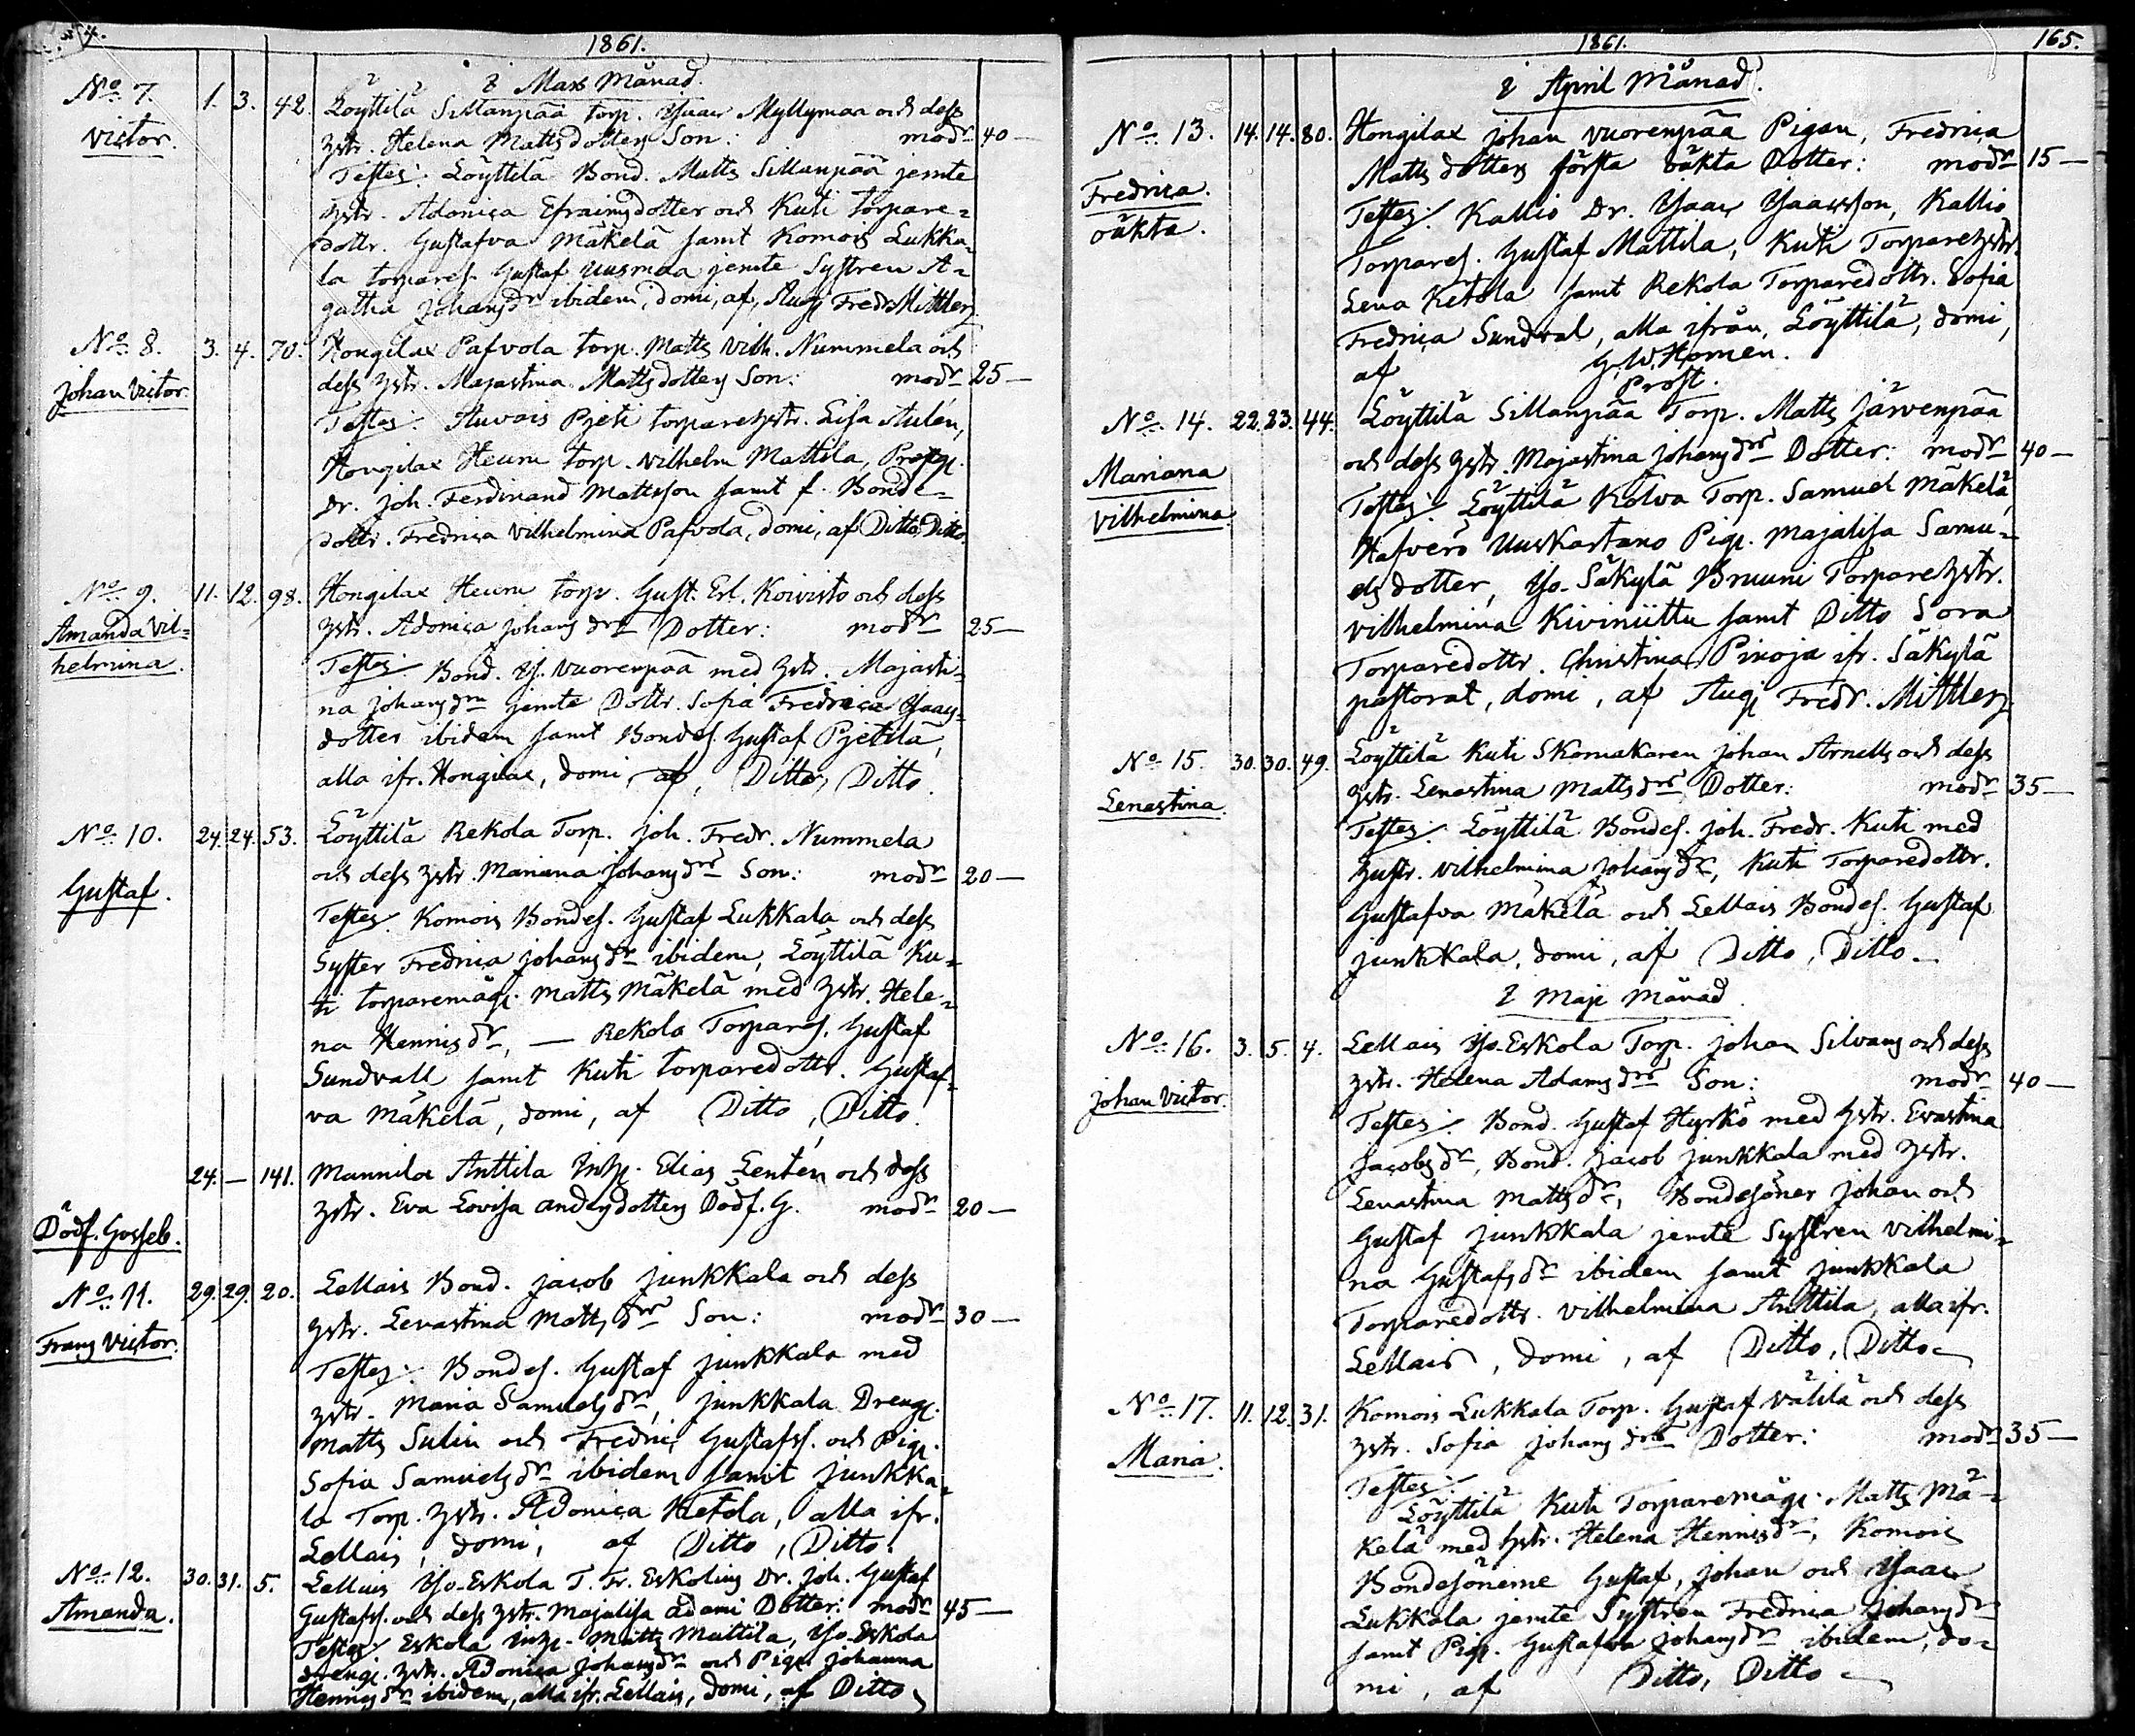 1861.
i Mars Månad.
No. 7. 1. 3. 42. Löyttilä Sillanpää torp. Isaac Myllymaa och dess
Victor. hstr. Helena Mattsdotters Son: modr 40 —
Testes: Löyttilä Bond. Matts Sillanpää jemte
hstr. Adonica Efraimsdotter och Kuti torpare=
dottr. Gustafva Mäkelä samt Komois Lukka=
la torpares. Gustaf Uusmaa jemte Systren A=
gatha Johansdr ibidem, domi, af, Aug. Fredr. Mittler.
No. 8. 3. 4. 70. Hongilax Pafvola torp. Matts Vilh. Nummela och
Johan Victor. dess hstr. Majastina Mattsdotters Son: modr 25 —
Testes: Auvais Pjeti torparehstr. Lisa Aulén,
Hongilax Heum torp. Vilhelm Mattila,
Dr. Joh. Ferdinand Mattsson samt f. Bonde=
dottr. Fredrica Vilhelmina Pafvola, domi, af Ditto, Ditto.
No. 9. 11. 12. 98. Hongilax Heum torp. Gust. Erl. Koivisto och dess
Amanda Vil= hstr. Adonica Johans drs Dotter: modr 25 —
helmina. Testes: Bond. Is. Vuorenpää med hstr. Majasti=
na Johansdr jemte Dottr. Sofia Fredrica Isaacs=
dotter ibidem samt Bondes. Gustaf Pjetilä,
alla ifr. Hongilax, domi, af, Ditto, Ditto.
No. 10. 24. 24. 53. Löyttilä Rekola Torp. Joh. Fredr. Nummela
Gustaf. och dess hstr. Mariana Johansdrs Son: modr 20 —
Testes: Komois Bondes. Gustaf Lukkala och dess
Syster Fredrica Johansdr ibidem, Löyttilä Ku=
ti torparemåg. Matts Mäkelä med hstr. Hele=
na Hennisdr, — Rekola Torpares. Gustaf
Sundvall samt Kuti torparedottr. Gustaf=
va Mäkelä, domi, af Ditto, Ditto.
24. — 141. Mannila Anttila Inh. Elias Lentén och dess
Dödf. Gosseb. hstr. Eva Lovisa andersdotters Dödf. G. modr 20 —
No. 11. 29. 29. 20. Lellais Bond. Jacob Junkkala och dess
Frans Victor. hstr. Lenastina Mattsdrs Son: modr 30 —
Testes: Bondes. Gustaf Junkkala med
hstr. Maria Samuelsdr, Junkkala Dreng.
Matts Sulin och Fredric Gustafss. och Pig.
Sofia Samuelsdr ibidem samt Junkka=
la Torp. hstr. Adonica Ketola, alla ifr.
Lellais, domi, af Ditto, Ditto.
No. 12. 30. 31. 5. Lellais Iso-Eskola T. Fr. Eskolins Dr. Joh. Gustaf
Amanda. Gustafss. och dess hstr. Majalisa adami Dotter: modr 45 —
Testes: Eskola Inh. Matts Mattila, Iso-Eskola
dreng. hstr. Adonica Johansdr och Pig. Johanna
Hennisdr ibidem, alla ifr. Lellais, domi, af Ditto,
1861. 165.
i April Månad.
No. 13. 14. 14. 80. Hongilax Johan Vuorenpää Pigan, Fredrica
Fredrica. Matts dotters första oäkta Dotter: modr 15 —
oäkta. Testes: Kallio Dr. Isaac Isaacsson, Kallio
Torpares. Gustaf Mattila, Kuti Torparehstr.
Lena Ketola samt Rekola Torparedottr. Sofia
Fredrica Sundval, alla ifrån, Löyttilä, domi,
af G. W. Homén.
Prost.
No. 14. 22. 23. 44. Löyttilä Sillanpää Torp. Matts Järvenpää
Mariana och dess hstr. Majastina Johansdrs Dotter: modr 40 —
Vilhelmina. Testes: Löyttilä Kolva Torp. Samuel Mäkelä,
Hafverö Uuskartano Pig. Majalisa Samu=
elsdotter, Iso-Säkylä Bruuni Torparehstr.
Vilhelmina Kiviniittu samt Ditto Sora
Torparedottr. Christina Pinoja ifr. Säkylä
pastorat, domi, af Aug. Fredr. Mittler.
No. 15. 30. 30. 49. Löyttilä Kuti Skomakaren Johan Arnells och dess
Lenastina. hstr. Lenastina Mattsdrs Dotter: modr 35 —
Testes: Löyttilä Bondes. Joh. Fredr. Kuti med
hustr. Vilhelmina Johansdr, Kuti Torparedottr.
Gustafva Mäkelä och Lellais Bondes. Gustaf
Junkkala, domi, af Ditto, Ditto —
i Maji Månad.
No. 16. 3. 5. 4. Lellais Iso-Eskola Torp. Johan Silvans och dess
Johan Victor. hstr. Helena Adamsdrs Son: modr 40 —
Testes: Bond. Gustaf Hyrkö med hstr. Evastina
Jacobsdr, Bond. Jacob Junkkala med hstr.
Lenastina Mattsdr, Bondesöner Johan och
Gustaf Junkkala jemte Systren Vilhelmi=
na Gustafsdr ibidem samt Junkkala
Torparedottr. Vilhelmina Anttila, alla ifr.
Lellais, domi, af Ditto, Ditto —
No. 17. 11. 12. 31. Komois Lukkala Torp. Gustaf Välilä och dess
Maria. hstr. Sofia Johans drs Dotter: modr 35 —
Testes:
Löyttilä Kuti Torparemåg. Matts Mä=
kelä med hstr. Helena Hennisdr, Komois
Bondesönerne Gustaf, Johan och Isaac
Lukkala jemte Systren Fredrica Johansdr
samt Pig. Gustafva Johansdr ibidem, do=
mi, af Ditto, Ditto —